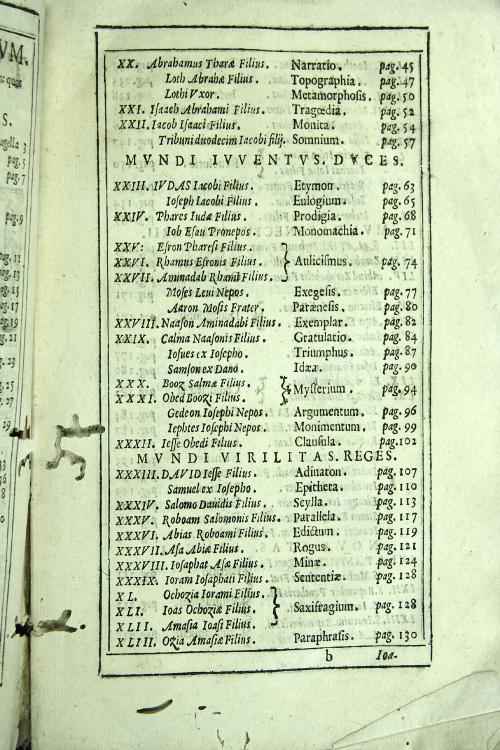 VM.
quos
S.
agella 3
pag.5
pag.7
pag.9
pag.11
pag.12
pag.13
pag.15
pag.17
pag.19
pag.21
pag.23
XX. Abrahamus Tharæ Filius. Narratio. pag.45
Loth Abrahæ Filius. Topographia. pag.47
Lothi Vxor. Metamorphosis. pag.50
XXI. Isaach Abrahami Filius. Tragœdia. pag.52
XXII. Iacob Isaaci Filius. Monita. pag.54
Tribuni duodecim Iacobi filij. Somnium. pag.57
MVNDI IVVENTVS. DVCES.
XXIII. IVDAS Iacobi Filius. Etymon. pag.63
Ioseph Iacobi Filius. Eulogium. pag.65
XXIV. Phares Iudæ Filius. Prodigia. pag.68
Iob Esau Pronepos. Monomachia. pag.71
XXV. Esron Pharesi Filius.
XXVI. Rhamus Esronis Filius. Aulicismus. pag.74
XXVII. Aminadab Rhami Filius.
Moses Leui Nepos. Exegesis. pag.77
Aaron Mosis Frater. Parænesis. pag.80
XXVIII. Naason Aminadabi Filius. Exemplar. pag.82
XXIX. Calma Naasonis Filius. Gratulatio. pag.84
Iosues ex Iosepho. Triumphus. pag.87
Samson ex Dano. Idææ. pag.90
XXX. Booz Salmæ Filius.
Mysterium. pag.94
XXXI. Obed Boozi Filius.
Gedeon Iosephi Nepos. Argumentum. pag.96
Iephtes Iosephi Nepos. Monimentum. pag.99
XXXII. Iesse Obedi Filius. Clausula. pag.102
MVNDI VIRILITAS. REGES.
XXXIII. DAVID Iesse Filius. Adinaton. pag.107
Samuel ex Iosepho. Epitheta. pag.110
XXXIV. Salomo Dauidis Filius. Scylla. pag.113
XXXV. Roboam Salomonis Filius. Parallela. pag.117
XXXVI. Abias Roboami Filius. Edictum. pag.119
XXXVII. Asa Abiæ Filius. Rogus. pag.121
XXXVIII. Iosaphat Asæ Filius. Minæ. pag.124
XXXIX. Ioram Iosaphati Filius. Sententiæ. pag.128
XL. Ochozia Iorami Filius.
XLI. Ioas Ochoziæ Filius. Saxifragium. pag.128
XLII. Amasia Ioasi Filius.
XLIII. Ozia Amasiæ Filius. Paraphrasis. pag.130
b Ioa-